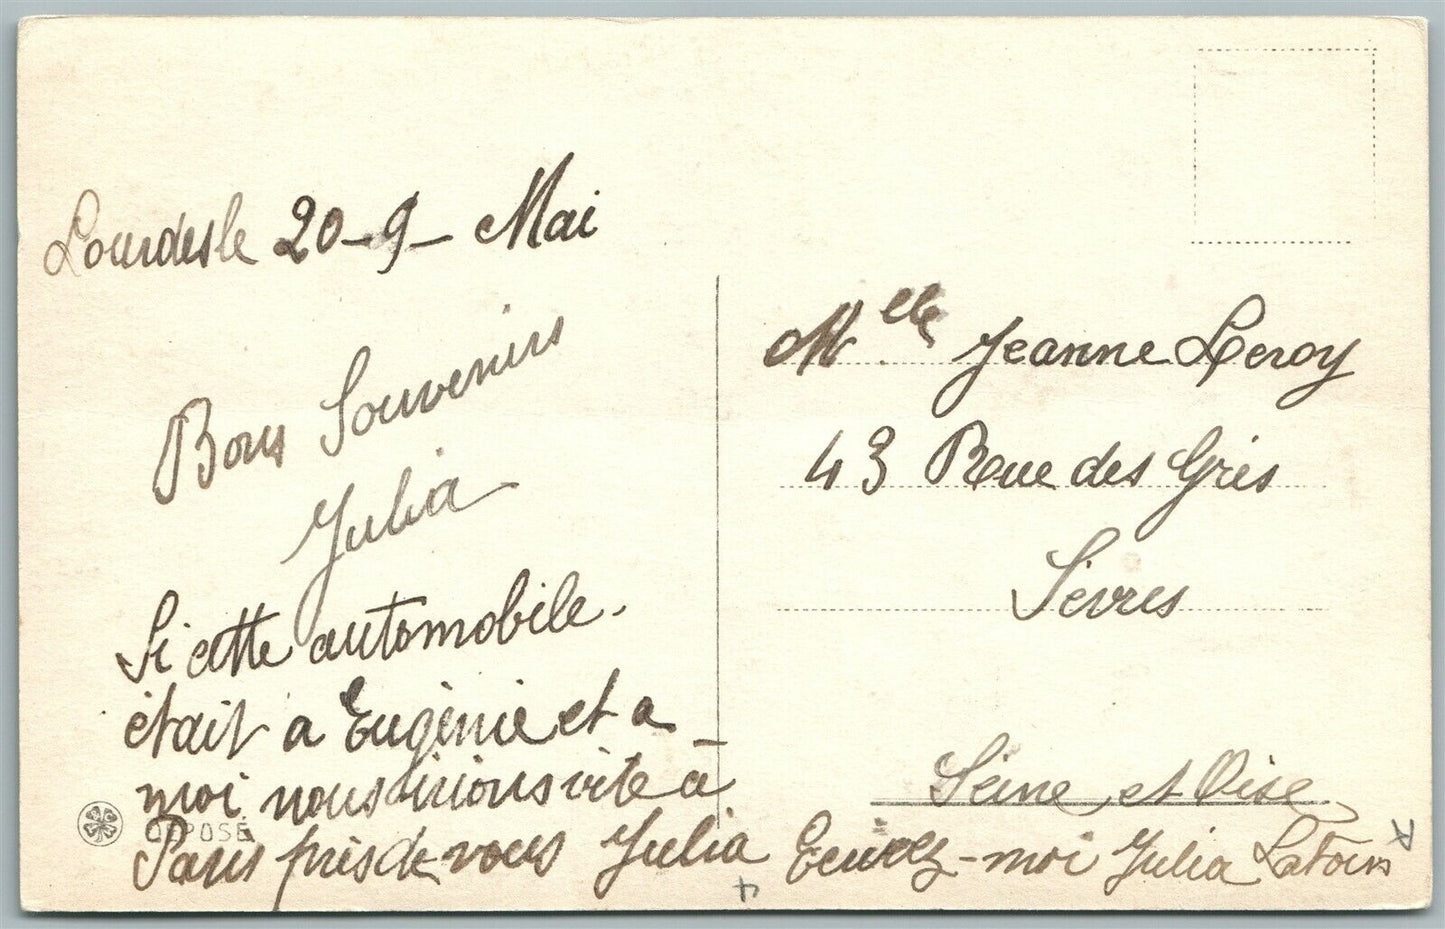 Lourdes le 20-9- Mai
Bons Souvenirs
Julia
Si cette automobile.
était a Eugènie et a
moi nous irions vite à
Paris près de vous Julia
DEPOSÉ
Mlle Jeanne Leroy
43 Rue des Grès
Sèvres
Seine et Oise
Ecrivez-moi Julia